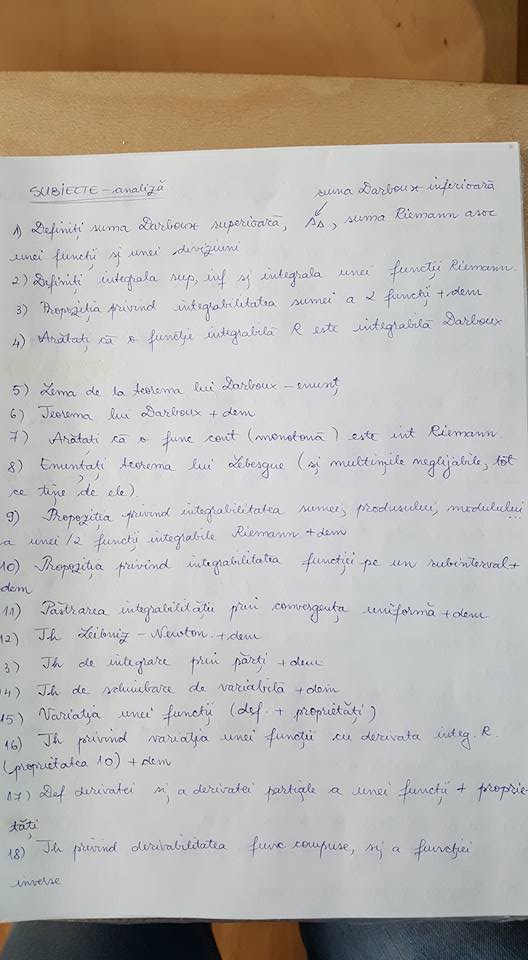 SUBIECTE - analiză
suma Darboux inferioară
1) Definiți suma Darboux superioară, s∆, suma Riemann asoc
unei funcții și unei diviziuni
2) Definiți integrala sup, inf și integrala unei funcții Riemann.
3) Propoziția privind integrabilitatea sumei a 2 funcții + dem.
4) Arătați că o funcție integrabilă R este integrabilă Darboux
5) Lema de la teorema lui Darboux - enunț
6) Teorema lui Darboux + dem
7) Arătați că o func cont (monotonă) este int Riemann.
8) Enunțați teorema lui Lebesgue (și mulțimile neglijabile, tot
ce ține de ele).
9) Propoziția privind integrabilitatea sumei, produsului, modulului...
a unei / 2 funcții integrabile Riemann. + dem
10) Propoziția privind integrabilitatea funcției pe un subinterval +
dem
11) Păstrarea integrabilității prin convergența uniformă + dem
12) Th Leibniz - Newton. + dem
3) Th de integrare prin părți + dem
14) Th de schimbare de variabilă + dem
15) Variația unei funcții (def. + proprietăți)
16) Th privind variația unei funcții cu derivata integ. R.
(proprietatea 10) + dem
17) Def derivatei și a derivatei parțiale a unei funcții + proprie-
tăți
18) Th privind derivabilitatea func compuse, și a funcției
inverse